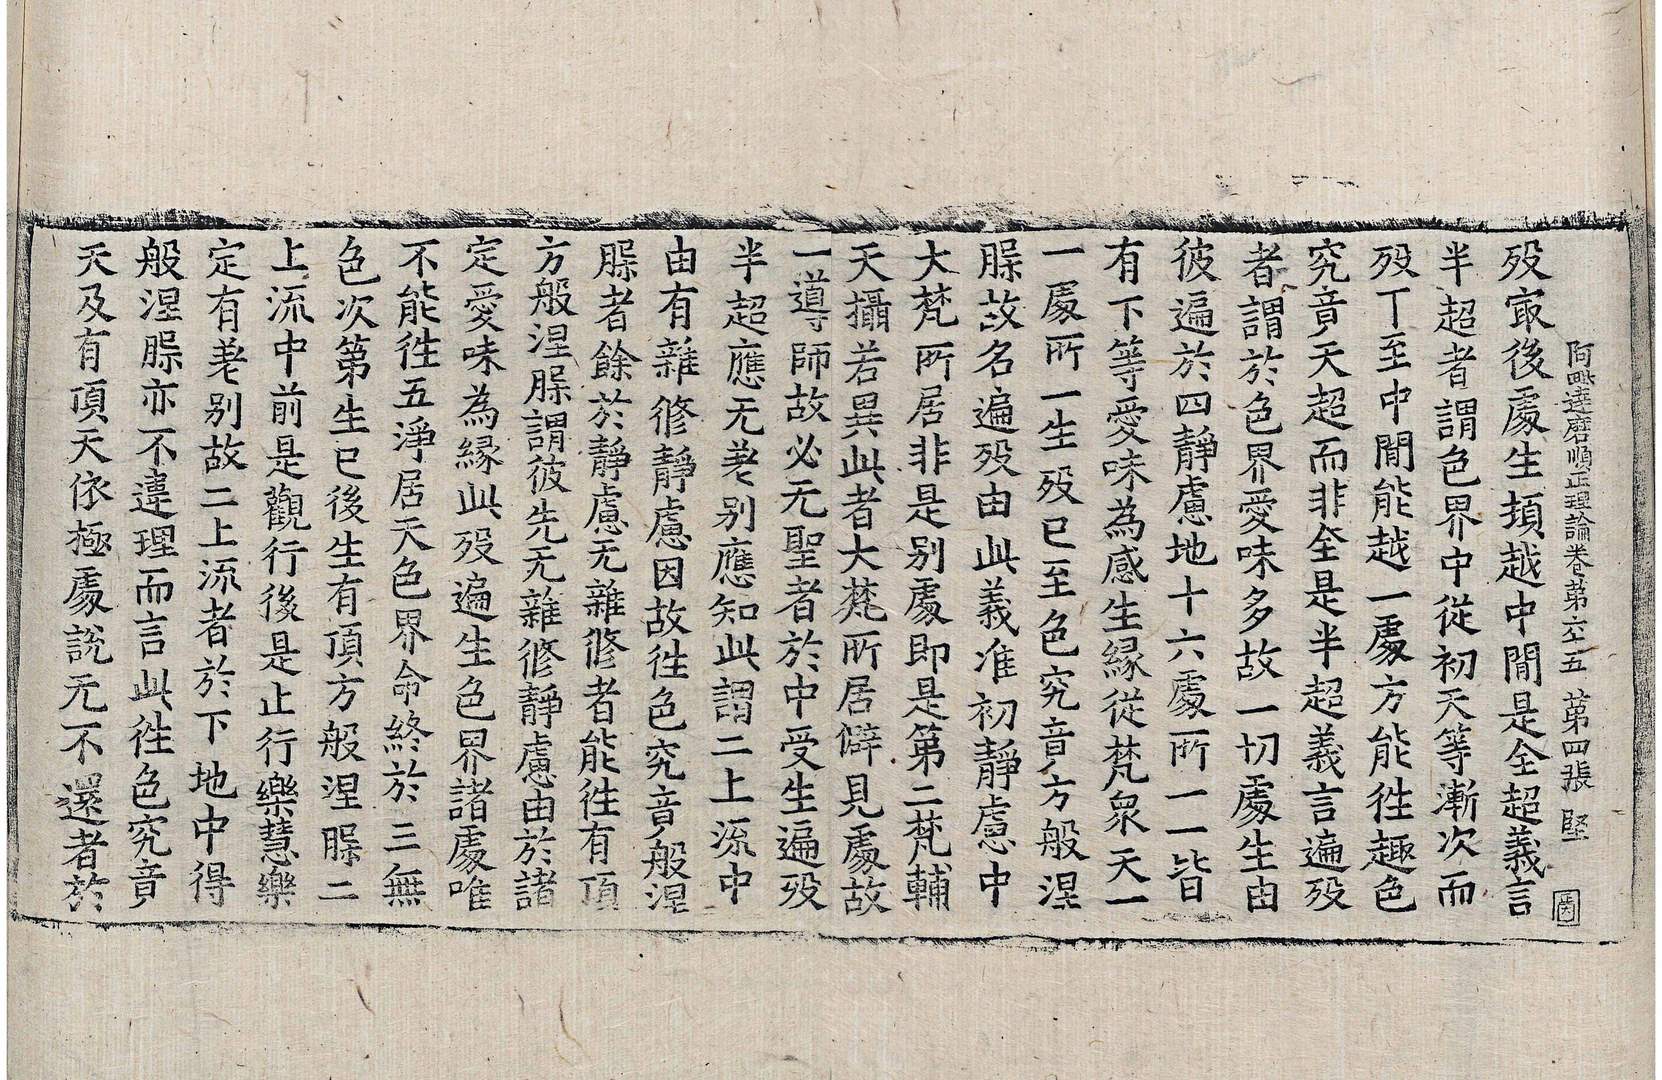 阿毗達磨順正理論卷苐六十五 苐四張 堅
因
歿㝡後處生頓越中間是全超義言
半超者謂色界中從初天等漸次而
歿下至中間能越一處方能徃趣色
究竟天超而非全是半超義言遍歿
者謂於色界愛味多故一切處生由
彼遍於四靜慮地十六處所一一皆
有下等愛味為感生緣從梵衆天一
一處所一生歿已至色究竟方般涅
槃故名遍歿由此義准初靜慮中
大梵所居非是別處即是第二梵輔
天攝若異此者大梵所居僻見處故
一導師故必无聖者於中受生遍歿
半超應无差別應知此謂二上流中
由有雜修靜慮因故徃色究竟般涅
槃者餘於靜慮无雜修者能徃有頂
方般涅槃謂彼先无雜修靜慮由於諸
定愛味為緣此歿遍生色界諸處唯
不能徃五淨居天色界命終於三無
色次第生已後生有頂方般涅槃二
上流中前是觀行後是止行樂慧樂
定有差別故二上流者於下地中得
般涅槃亦不違理而言此徃色究竟
天及有頂天依極處說无不還者於